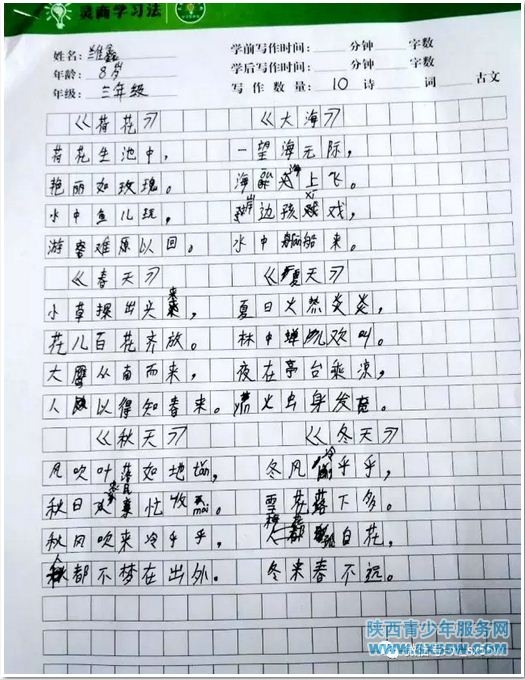 灵商学习法
姓名: 雒鑫 学前写作时间: 分钟 字数
年龄: 8岁 学后写作时间: 分钟 字数
年级: 三年级 写作数量: 10 诗 词 古文
《荷花》 《大海》
荷花生池中, 一望海无际,
艳丽如玫瑰。 海 上飞。
水中鱼儿玩, 岸边孩 戏,
游客难原以回。 水中 船来。
《春天》 《夏天》
小草探出头来, 夏日火然炎炎,
花儿百花齐放。 林中蝉儿欢叫。
大雁从南而来, 夜在亭台乘凉,
人 以得知春来。 火虫身发 。
《秋天》 《冬天》
风吹叶落如地tǎn, 冬风冷乎乎,
秋日 忙收mai。 雪花落下多。
秋风吹来冷乎乎, 自花,
都不梦在出外。 冬来春不远。
陕西青少年服务网